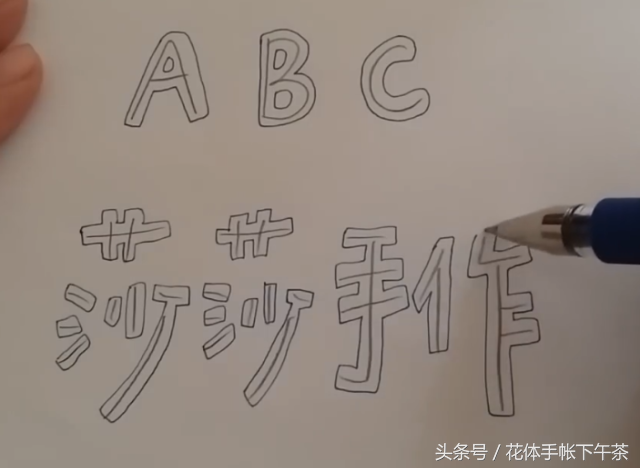 A B C
莎莎手作
头条号 / 花体手帐下午茶